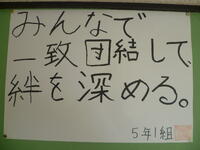 みんなで
一致団結して、
絆を深める。
5年1組